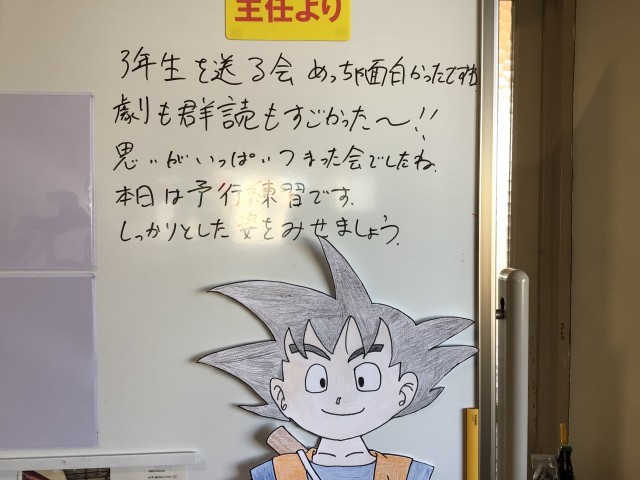 主任より
3年生を送る会 めっちゃ面白かったですね
劇も群読もすごかった〜!!
思いがいっぱいつまった会でしたね.
本日は予行練習です.
しっかりとした姿をみせましょう.